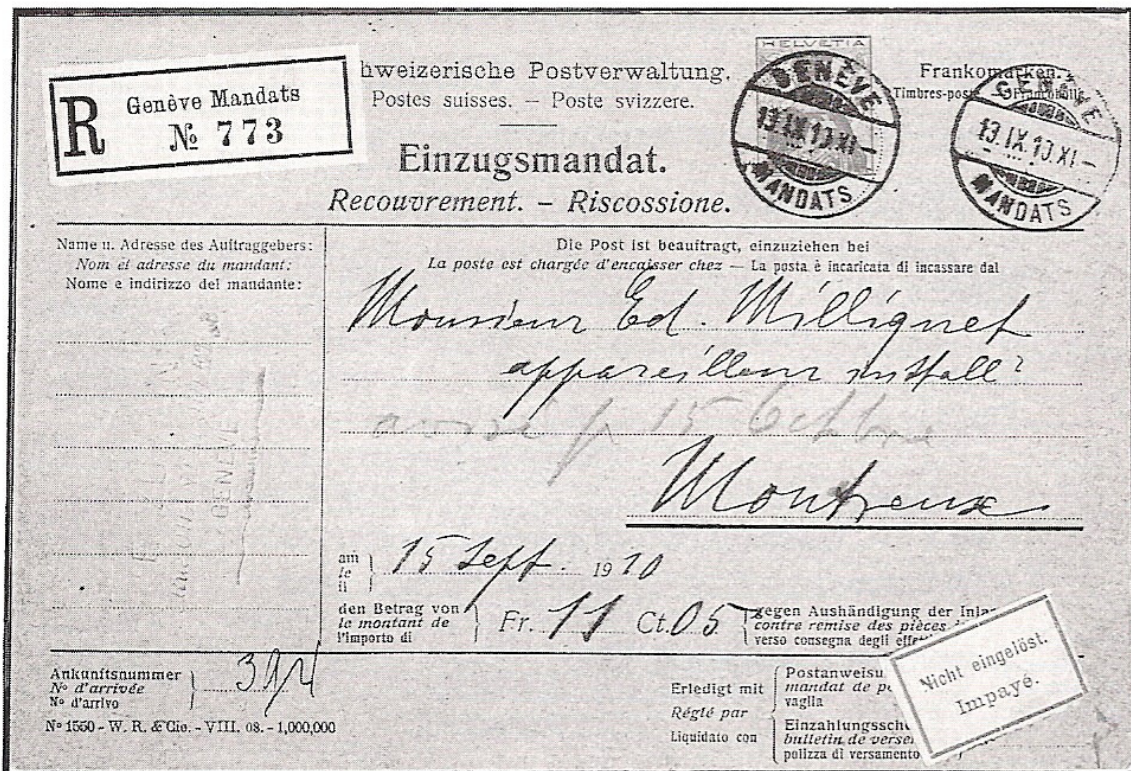 R Genève Mandats
№ 773
hweizerische Postverwaltung.
Postes suisses. – Poste svizzere.
Einzugsmandat.
Recouvrement. – Riscossione.
HELVETIA
GENÈVE
13.IX.10.XI–
MANDATS
Frankomarken.
Timbres-poste
GENÈVE
13.IX.10.XI–
MANDATS
Name u. Adresse des Auftraggebers:
Nom et adresse du mandant:
Nome e indirizzo del mandante:
GENÈVE
Die Post ist beauftragt, einzuziehen bei
La poste est chargée d'encaisser chez — La posta è incaricata di incassare dal
Monsieur Ed. Milliquet
appareilleur install
15 Octobre
Montreux
am
le
il
15 Sept. 1910
den Betrag von
le montant de
l'importo di
Fr. 11 Ct. 05
gegen Aushändigung der Inla
contre remise des pièces
verso consegna degli effet
Ankunftsnummer
No d'arrivée
No d'arrivo
Nº 1550 - W. R. & Cie. - VIII. 08. - 1,000,000
Erledigt mit
Réglé par
Liquidato con
Postanweisu
mandat de po
vaglia
Einzahlungssch
bulletin de verse
polizza di versamento
Nicht eingelöst.
Impayé.